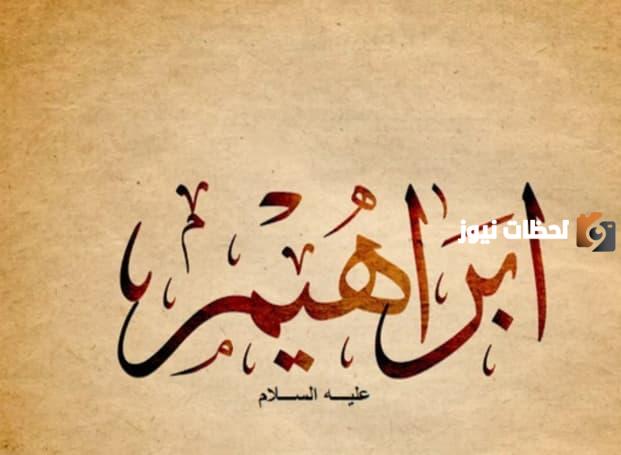 ابراهيم
لحظات نيوز
عليه السلام